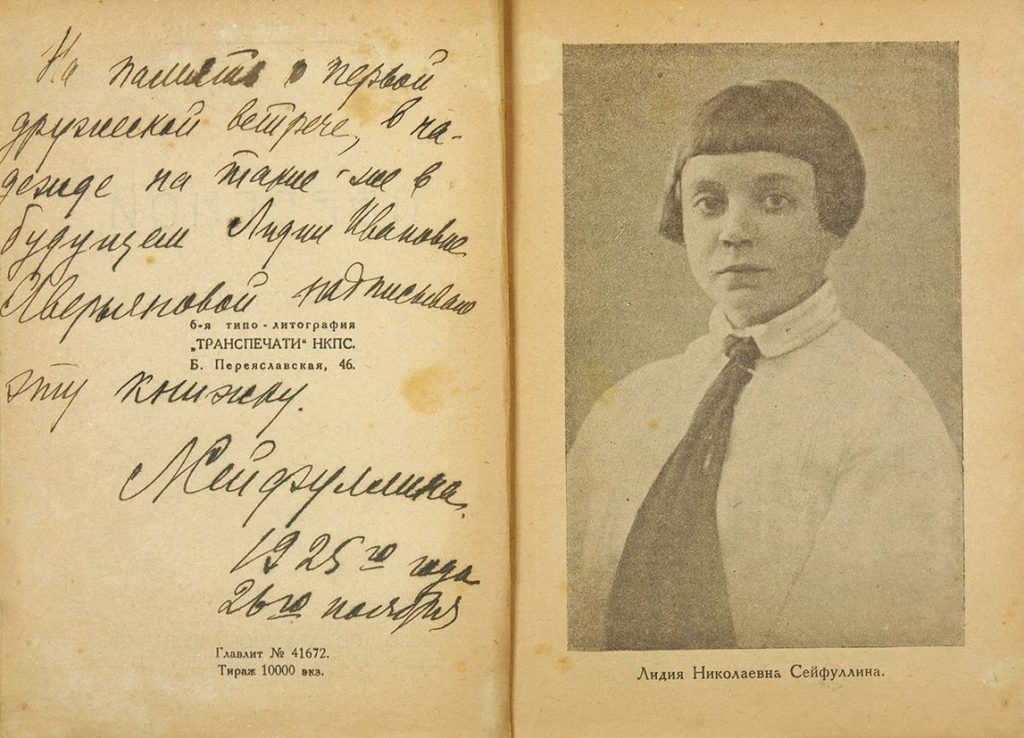 На память о первой
дружеской встрече, в на-
дежде на такие-же в
будущем Лидии Ивановне
Аверьяновой надписываю
6-я типо-литография
„ТРАНСПЕЧАТИ“ НКПС.
Б. Переяславская, 46.
эту книжку.
Л Сейфуллина.
1925го года
26го ноября
Главлит № 41672.
Тираж 10000 экз.
Лидия Николаевна Сейфуллина.